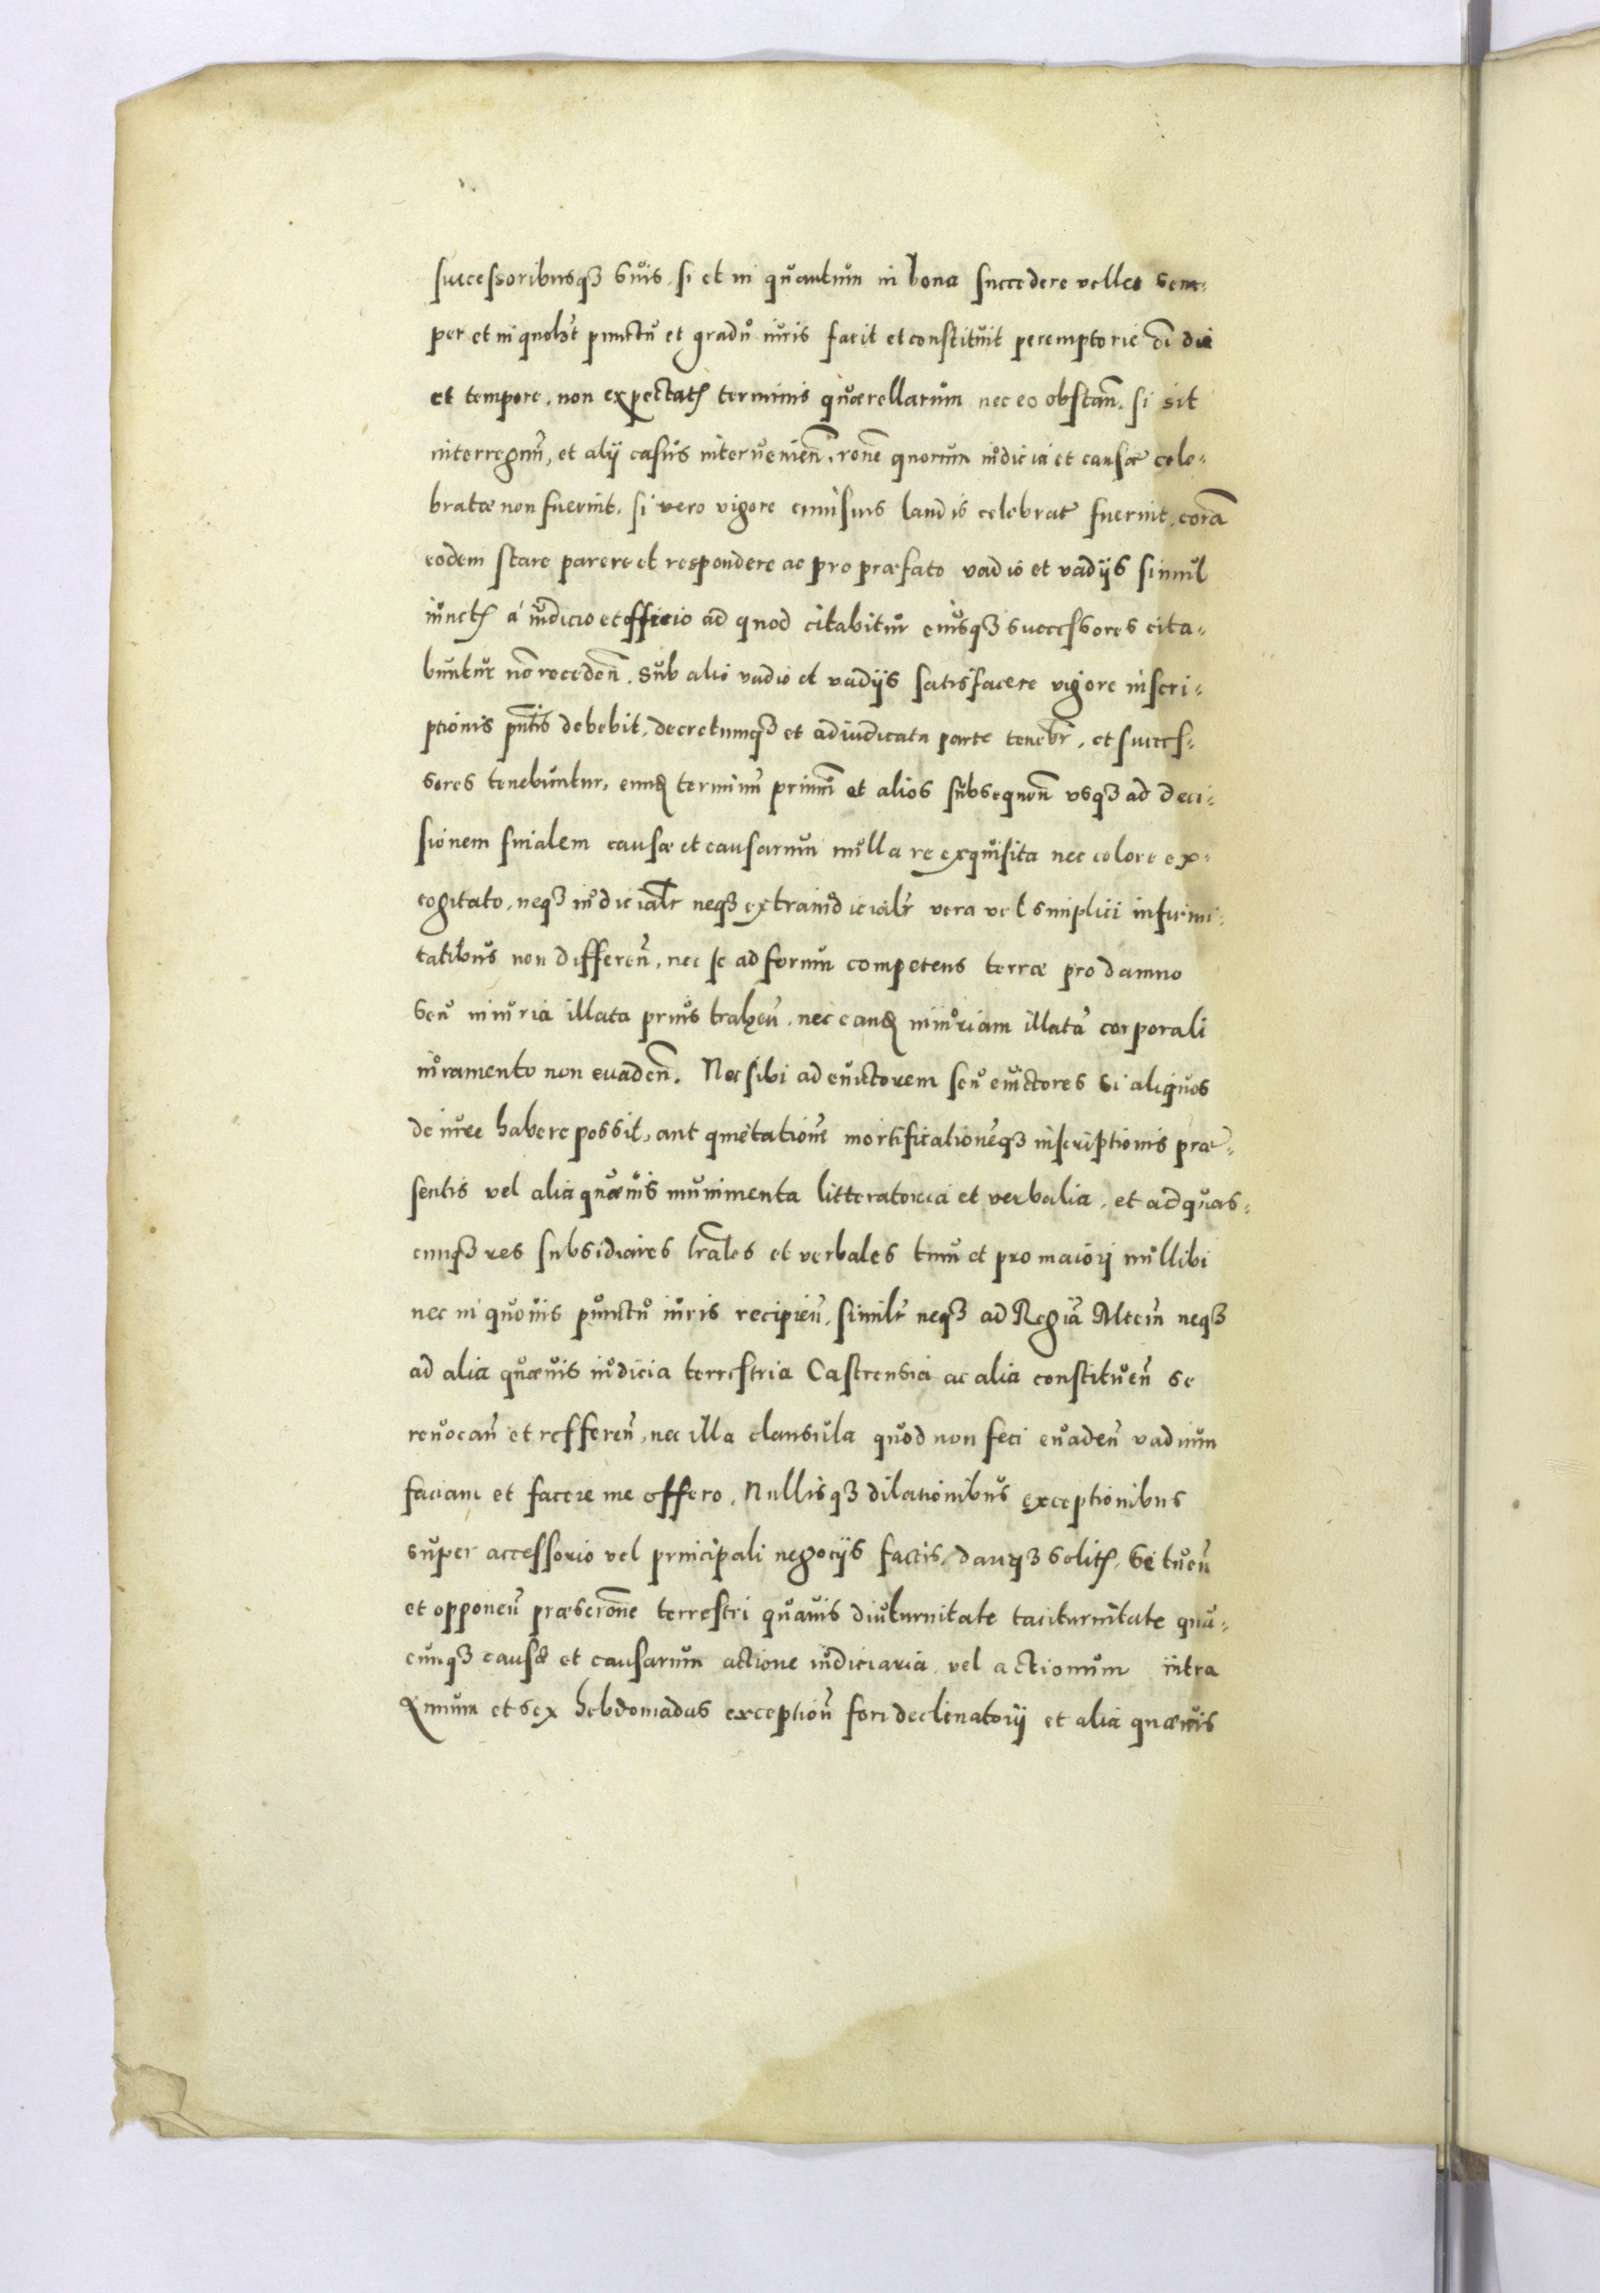 successoribusq₃ suis, si et in quantum in bona succedere velles sem-
per et in quolꝫt punctu et gradu iuris facit et constituit peremptorie oi die
et tempore, non expectatꝭ terminis quærellarum nec eo obstan̄, si sit
interregnū, et alij casus intervenien̄, rōne quorum iudicia et causæ cele-
bratæ non fuerint, si vero vigore cuiusuis laudis celebratæ fuerint, corā
eodem stare parere et respondere ac pro præfato vadio et vadijs simul
iunctꝭ á iudicio et officio ad quod citabitur eiusq₃ successores cita-
buntur nō receden̄. Sub alio vadio et vadijs satisfacere vigore inscri-
ptionis pn̄tis debebit, decretumq₃ et adiudicata parte tenebr̄, et succes-
sores tenebuntur, eundꝫ terminū primū et alios subsequen̄ usq₃ ad deci-
sionem finalem causæ et causarum nulla re exquisita nec colore ex-
cogitato, neq₃ iudicialr̄ neq₃ extraiudicialr̄ vera vel simplici infirmi-
tatibus non differen̄, nec se ad forum competens terræ pro damno
seu iniuria illata prius trahen̄, nec eandꝫ iniuriam illatā corporali
iuramento non evaden̄. Nec sibi ad evictorem seu evictores si aliquos
de iure habere possit, aut quietationē mortificationēq₃ inscriptionis præ-
sentis vel alia quævis munimenta litteratoria et verbalia, et ad quas-
cunq₃ res subsidiares lrāles et verbales tum et pro maiori nullibi
nec in quovis punctu iuris recipien̄, similr̄ neq₃ ad Regiā Mtēm neq₃
ad alia quævis iudicia terrestria Castrensia ac alia constituen̄ se
revocan̄ et refferen̄, nec illa clausula quod non feci evaden̄ vadium
faciam et facere me offero, Nullisq₃ dilationibus exceptionibus
super accessorio vel principali negocijs factis, dariq₃ solitꝭ, se tuen̄
et opponen̄ præscrōne terrestri quavis diuturnitate taciturnitate qua-
cunq₃ causæ et causarum actione iudiciaria, vel actionum intra
annum et sex hebdomadas exception̄ fori declinatorij et alia quævis